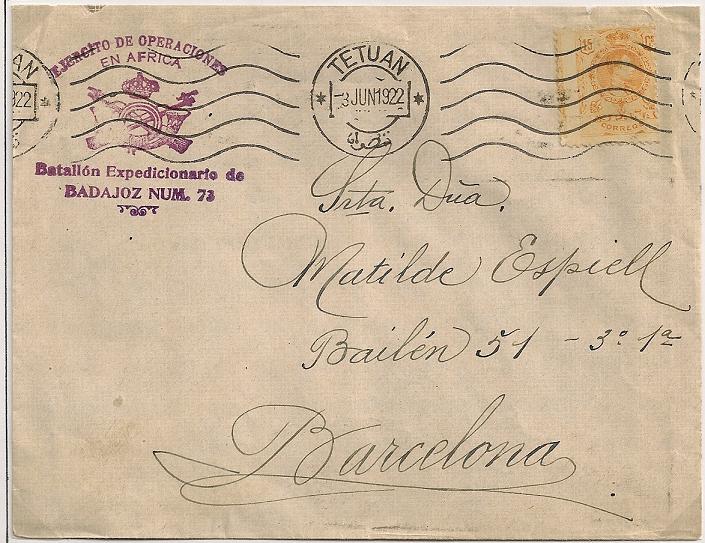 EJERCITO DE OPERACIONES
EN AFRICA
Batallón Expedicionario de
BADAJOZ NUM. 73
TETUAN
3 JUN 1922
تطوان
AN
922
15 Cs
CORREOS
Srta. Dña.
Matilde Espiell
Bailén 51 - 3º 1ª
Barcelona